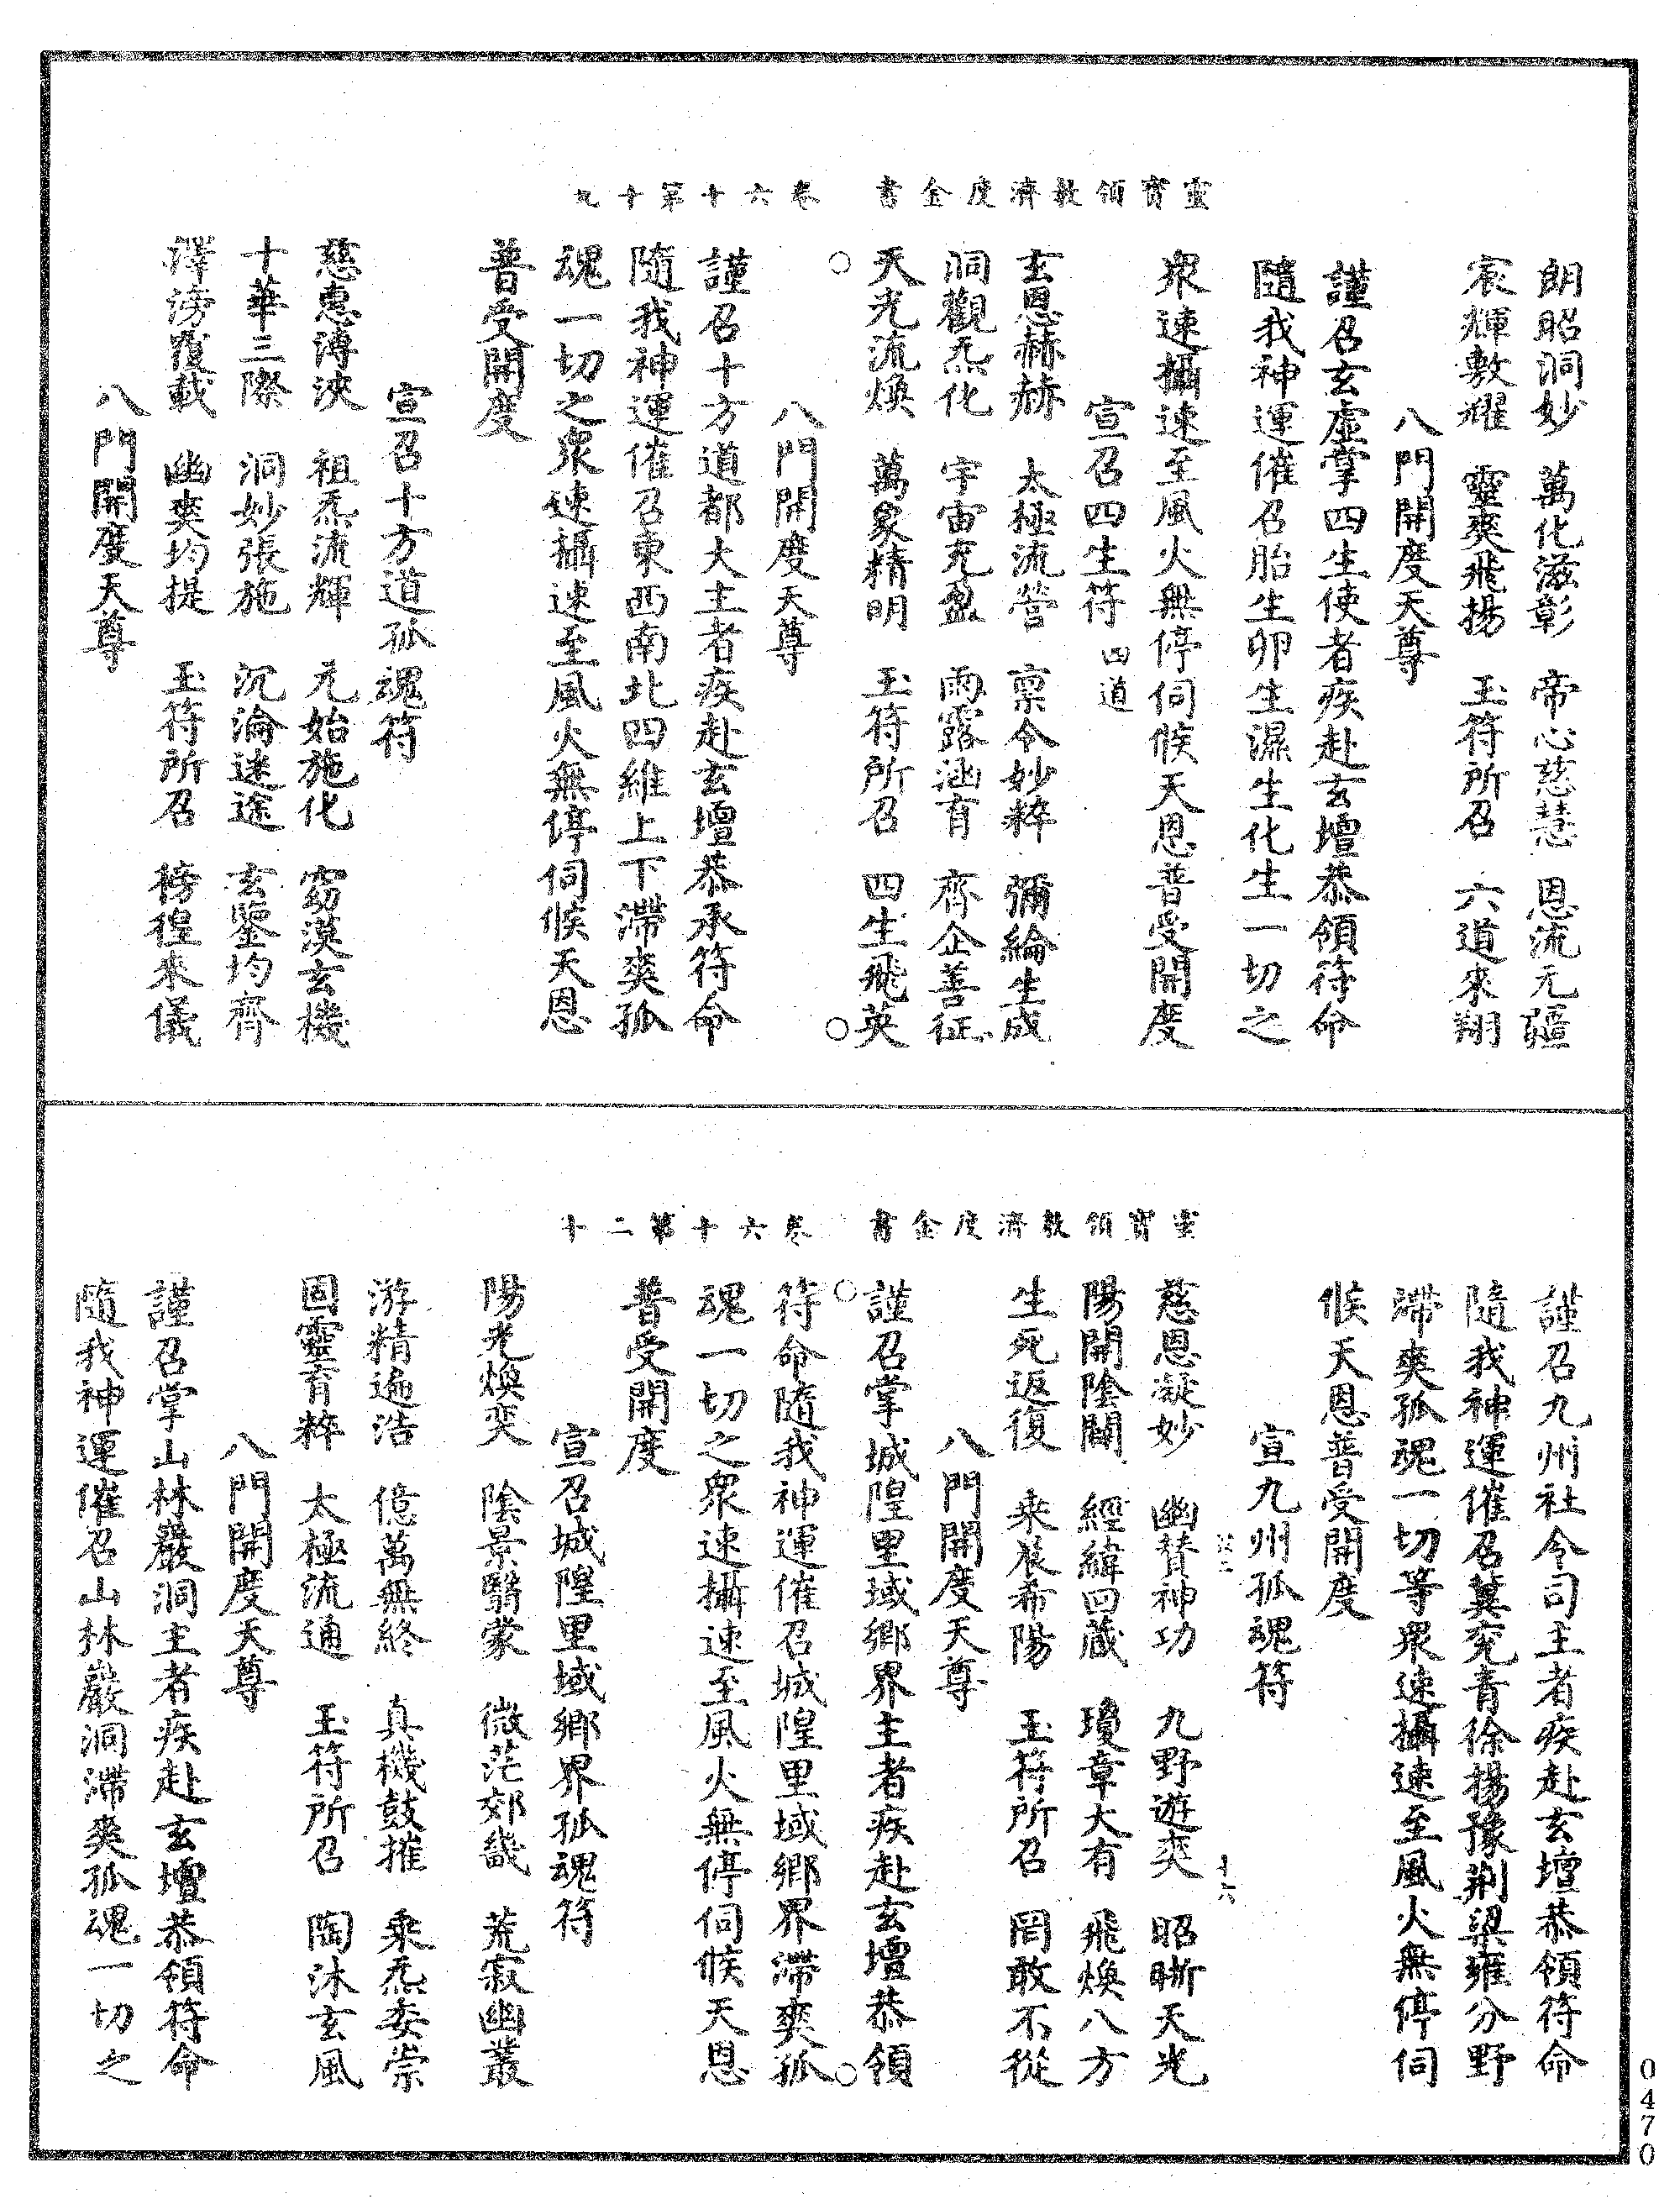 靈寶領教濟度金書　卷六十第十九
朗昭洞妙　萬化滋彰　帝心慈慧　恩流无疆
宸輝敷耀　靈爽飛揚　玉符所召　六道來翔
八門開度天尊
謹召玄虛掌四生使者疾赴玄壇恭領符命
隨我神運催召胎生卵生濕生化生一切之
眾速攝速至風火無停伺候天恩普受開度
宣召四生符四道
玄恩赫赫　太極流營　稟令妙粹　彌綸生成
洞觀炁化　宇宙充盈　雨露涵育　齊企善征
天光流煥　萬象精明　玉符所召　四生飛英
八門開度天尊
謹召十方道都大主者疾赴玄壇恭承符命
隨我神運催召東西南北四維上下滯爽孤
魂一切之眾速攝速至風火無停伺候天恩
普受開度
宣召十方道孤魂符
慈惠溥浹　祖炁流輝　元始施化　窈漠玄機
十華三際　洞妙張施　沉淪迷途　玄鑒均齊
譯滂覆載　幽爽均提　玉符所召　徬徨來儀
八門開度天尊
靈寶領教濟度金書　卷六十第二十
謹召九州社令司主者疾赴玄壇恭領符命
隨我神運催召冀兗青徐揚豫荆梁雍分野
滯爽孤魂一切等眾速攝速至風火無停伺
候天恩普受開度
宣九州孤魂符
慈恩凝妙　幽贊神功　九野遊爽　昭晰天光
陽開陰闢　經緯四藏　瓊章大有　飛煥八方
生死返復　来晨希陽　玉符所召　罔敢不從
八門開度天尊
謹召掌城隍里域鄉界主者疾赴玄壇恭領
符命隨我神運催召城隍里域鄉界滯爽孤
魂一切之眾速攝速至風火無停伺候天恩
普受開度
宣召城隍里域鄉界孤魂符
陽光煥奕　陰景翳蒙　微茫郊畿　荒寂幽叢
游精遍浩　億萬無終　真機鼓摧　乘炁委崇
固靈育粹　太極流通　玉符所召　陶沐玄風
八門開度天尊
謹召掌山林巖洞主者疾赴玄壇恭領符命
隨我神運催召山林巖洞滯爽孤魂一切之
十六
0470